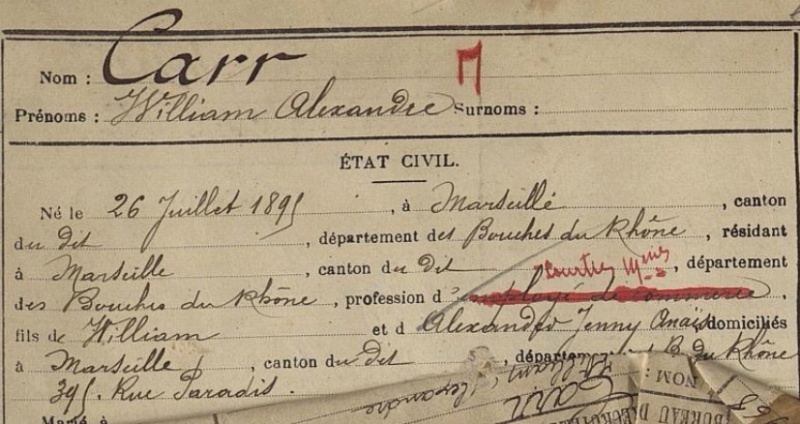 Nom : Carr
Prénoms : William Alexandre Surnoms :
ÉTAT CIVIL.
Né le 26 Juillet 1895, à Marseille, canton
du dit, département des Bouches du Rhône, résidant
à Marseille, canton du dit, département
Courtier
des Bouches du Rhône, profession d'employé de commerce.
fils de William et d'Alexander Jenny Anaïs domiciliés
à Marseille, canton du dit, département B. du Rhône
395. Rue Paradis.
Marié à
Carr
William Alexandre
NOM :
BUREAU DE